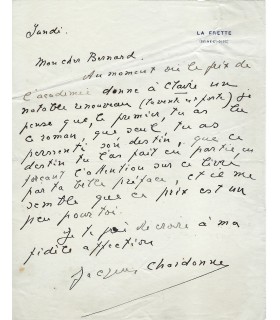 LA FRETTE
Jeudi.
Mon cher Bernard
Au moment où le prix de
l'académie donne à Claire un
notable renouveau (la vente est forte) je
pense que le premier, tu as lu
ce roman, que seul, tu as
pressenti son destin, que ce
destin tu l'as fait en partie en
forçant l'attention sur ce livre
par ta belle préface, et il me
semble que ce prix est un
peu pour toi.
Je te prie de croire à ma
fidèle affection
Jacques Chardonne